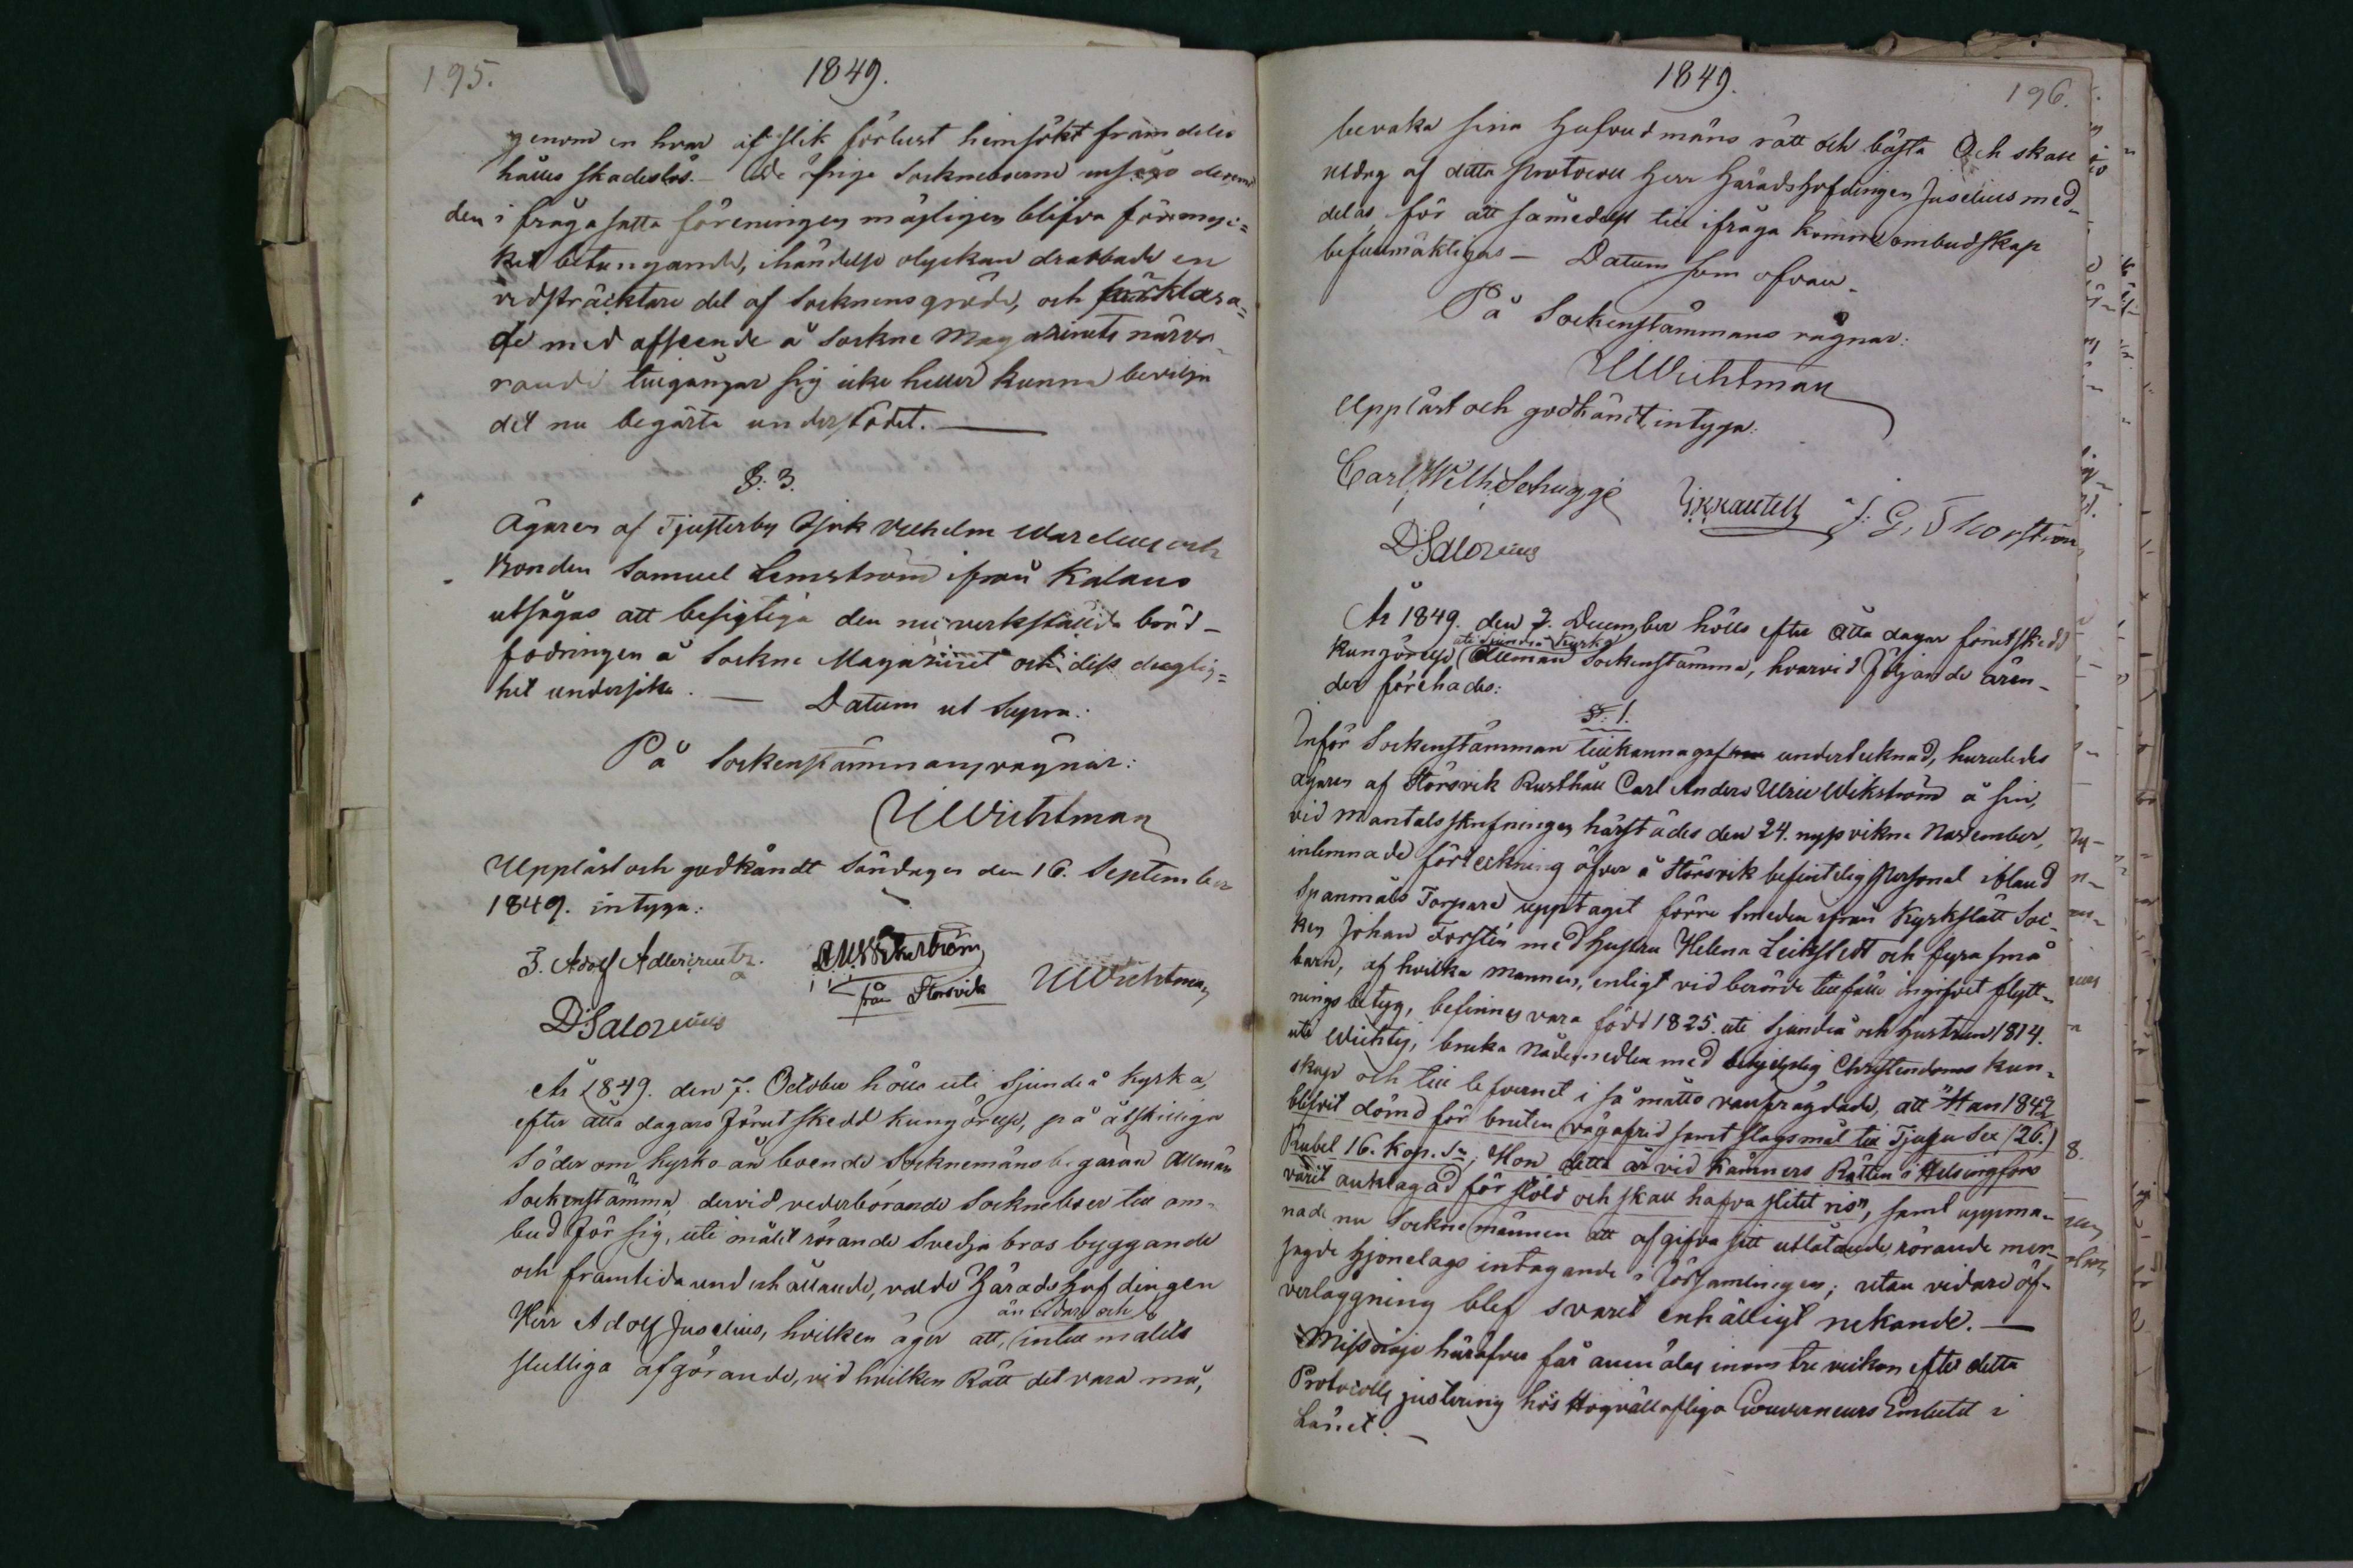 195.
1849.
genom en hvar af slik förlust hemsökt framdeles
hålles skadeslös. — De öfrige Sockneboerne ansågo deremot
den i frågasatta föreningen möjligen blifva för myc=
ket betungande, ihändelse olyckan drabbade en
vidsträcktare del af Socknens gröda, och förklara=
de med afseende å Sockne Magazinets närva-
rande tillgångar sig icke heller kunna bevilja
det nu begärta understödet. —
§. 3.
Ägaren af Tjusterby Wilhelm Warelius och
Bonden Samuel Lemström ifrån Kalans
utsågos att besigtiga den nu verkställda bord-
fodringen å Sockne Magazinet och dess duglig=
het undersöka. — Datum ut Supra.
På Sockenstämmans vägnar:
UWichtman
Uppläst och godkändt Söndagen den 16. September
1849. intyga:
J. Adolf Adlercreutz.
från Storsvik
UWichtman
DSalovius
År 1849. den 7. October hölls uti Sjundeå Kyrka,
efter åtta dagars förut skedd kungörelse, på åtskillige
Söder om Kyrko ån boende Socknemäns begäran Allmän
Sockenstämma, dervid vederbörande Sockneboer till om-
bud för sig, uti målet rörande Svedja bros byggande
och framtida underhållande, valde Häradshöfdingen
Herr Adolf Juselius, hvilken äger att, intill målets
än vidare och
slutliga afgörande, vid hvilken Rätt det vara må,
1849.
196.
bevaka sina Hufvudmäns rätt och bästa Och skall
utdrag af detta Protocoll Herr Häradshöfdingen Juselius med-
delas för att såmedelst till ifråga kommet ombudskap
befullmäktigas — Datum som ofvan.
På Sockenstämmans vägnar:
UWichtman
Uppläst och godkändt, intyga:
Carl Wilh Schugge
J. G. Thorström
DSalovius
År 1849. den 2. December hölls efter åtta dagar förutskedd
uti Sjundeå Kyrka
kungörelse Allmän Sockenstämma, hvarvid följande ären-
der förehades:
§. 1.
Inför Sockenstämman tillkännagaf undertecknad, huruledes
ägaren af Störsvik Rusthåll Carl Anders Ulric Wikström å sin,
vid Mantalsskrifningen härstädes den 24. nyssvikne November,
inlemnade förteckning öfver å Störsvik befintelig Personal ibland
Spanmåls Torpare upptagit förre Smeden ifrån Kyrkslätt Soc-
ken Johan Forstén med hustru Helena Leikstedt och fyra små
barn, af hvilka mannen, enligt vid berörde tillfälle ingifvet flytt-
ningsbetyg, befinnes vara född 1825. uti Sjundeå och hustrun 1814.
uti Wichtis, bruka Nådemedlen med behjelplig Christendoms kun-
skap och till lefvernet i så måtto vanfrägdade, att "Han 1842
blifvit dömd för bruten vägafrid samt slagsmål till Tjugu Sex (26.)
Rubel 16. Kop. Sr; Hon detta år vid Kämners Rätten i Helsingfors
varit anklagad för stöld och skall hafva slitit ris", samt uppma-
nade nu Sockne männen att afgifva sitt utlåtande, rörande mer-
sagde Hjonelags intagande i Församlingen; utan vidare öf-
verläggning blef svaret enhälligt nekande. —
Missnöje häröfver får anmälas inom tre veckor efter detta
Protocolls justering hos Högvällofliga Gouverneurs Embetet i
Länet. —